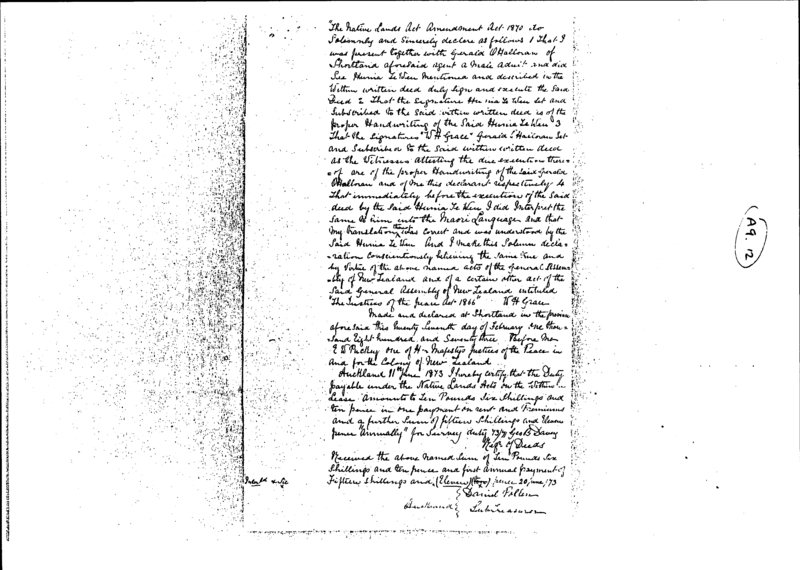 "The Native Lands Act Amendment Act 1870 do
Solemnly and Sincerely declare as follows 1 That I
was present together with Gerald O'Halloran of
Shortland aforesaid agent a Male adult and did
See Hunia Te Weu mentioned and described in the
Within written deed duly Sign and execute the Said
Deed 2 That the Signature Hunia Te Weu Set and
Subscribed to the Said within written deed is of the
proper Handwriting of the Said Hunia Te Weu 3
That the Signatures "W H Grace" Gerald O'Halloran Set
and Subscribed to the said within written deed
as the Witnesses attesting the due execution there=
=of are of the proper Handwriting of the Said Gerald
O'Halloran and of Me this declarant respectively 4
That immediately before the execution of the Said
deed by the Said Hunia Te Weu I did Interpret the
Same to him into the Maori Language and that
my translation was correct and was understood by the
Said Hunia Te Weu And I make this Solemn decla=
=ration Conscientiously believing the Same true and
by Virtue of the above named acts of the General Assem=
=bly of New Zealand and of a certain other act of the
Said General Assembly of New Zealand intituled
"The Justices of the peace Act 1866" W H Grace
Made and declared at Shortland in the province
aforesaid this twenty Seventh day of February One thou=
=sand Eight hundred and Seventy three Before Me
E W Puckey One of Her Majestys Justices of the Peace in
and for the Colony of New Zealand
Auckland 11th June 1873 I hereby certify that the Duty
payable under the Native Lands Acts on the Within
Lease amounts to Ten Pounds Six Shillings and
ten pence in one payment on rent and Premiums
and a further Sum of fifteen Shillings and Eleven
pence Annually" for Survey duty
Regr of Deeds
Received the above Named Sum of Ten Pounds Six
Shillings and ten pence and first annual payment of
fifteen Shillings and (Eleven) pence 20 June/73
Daniel Pollen
Auckland } Sub Treasurer
A9. 12